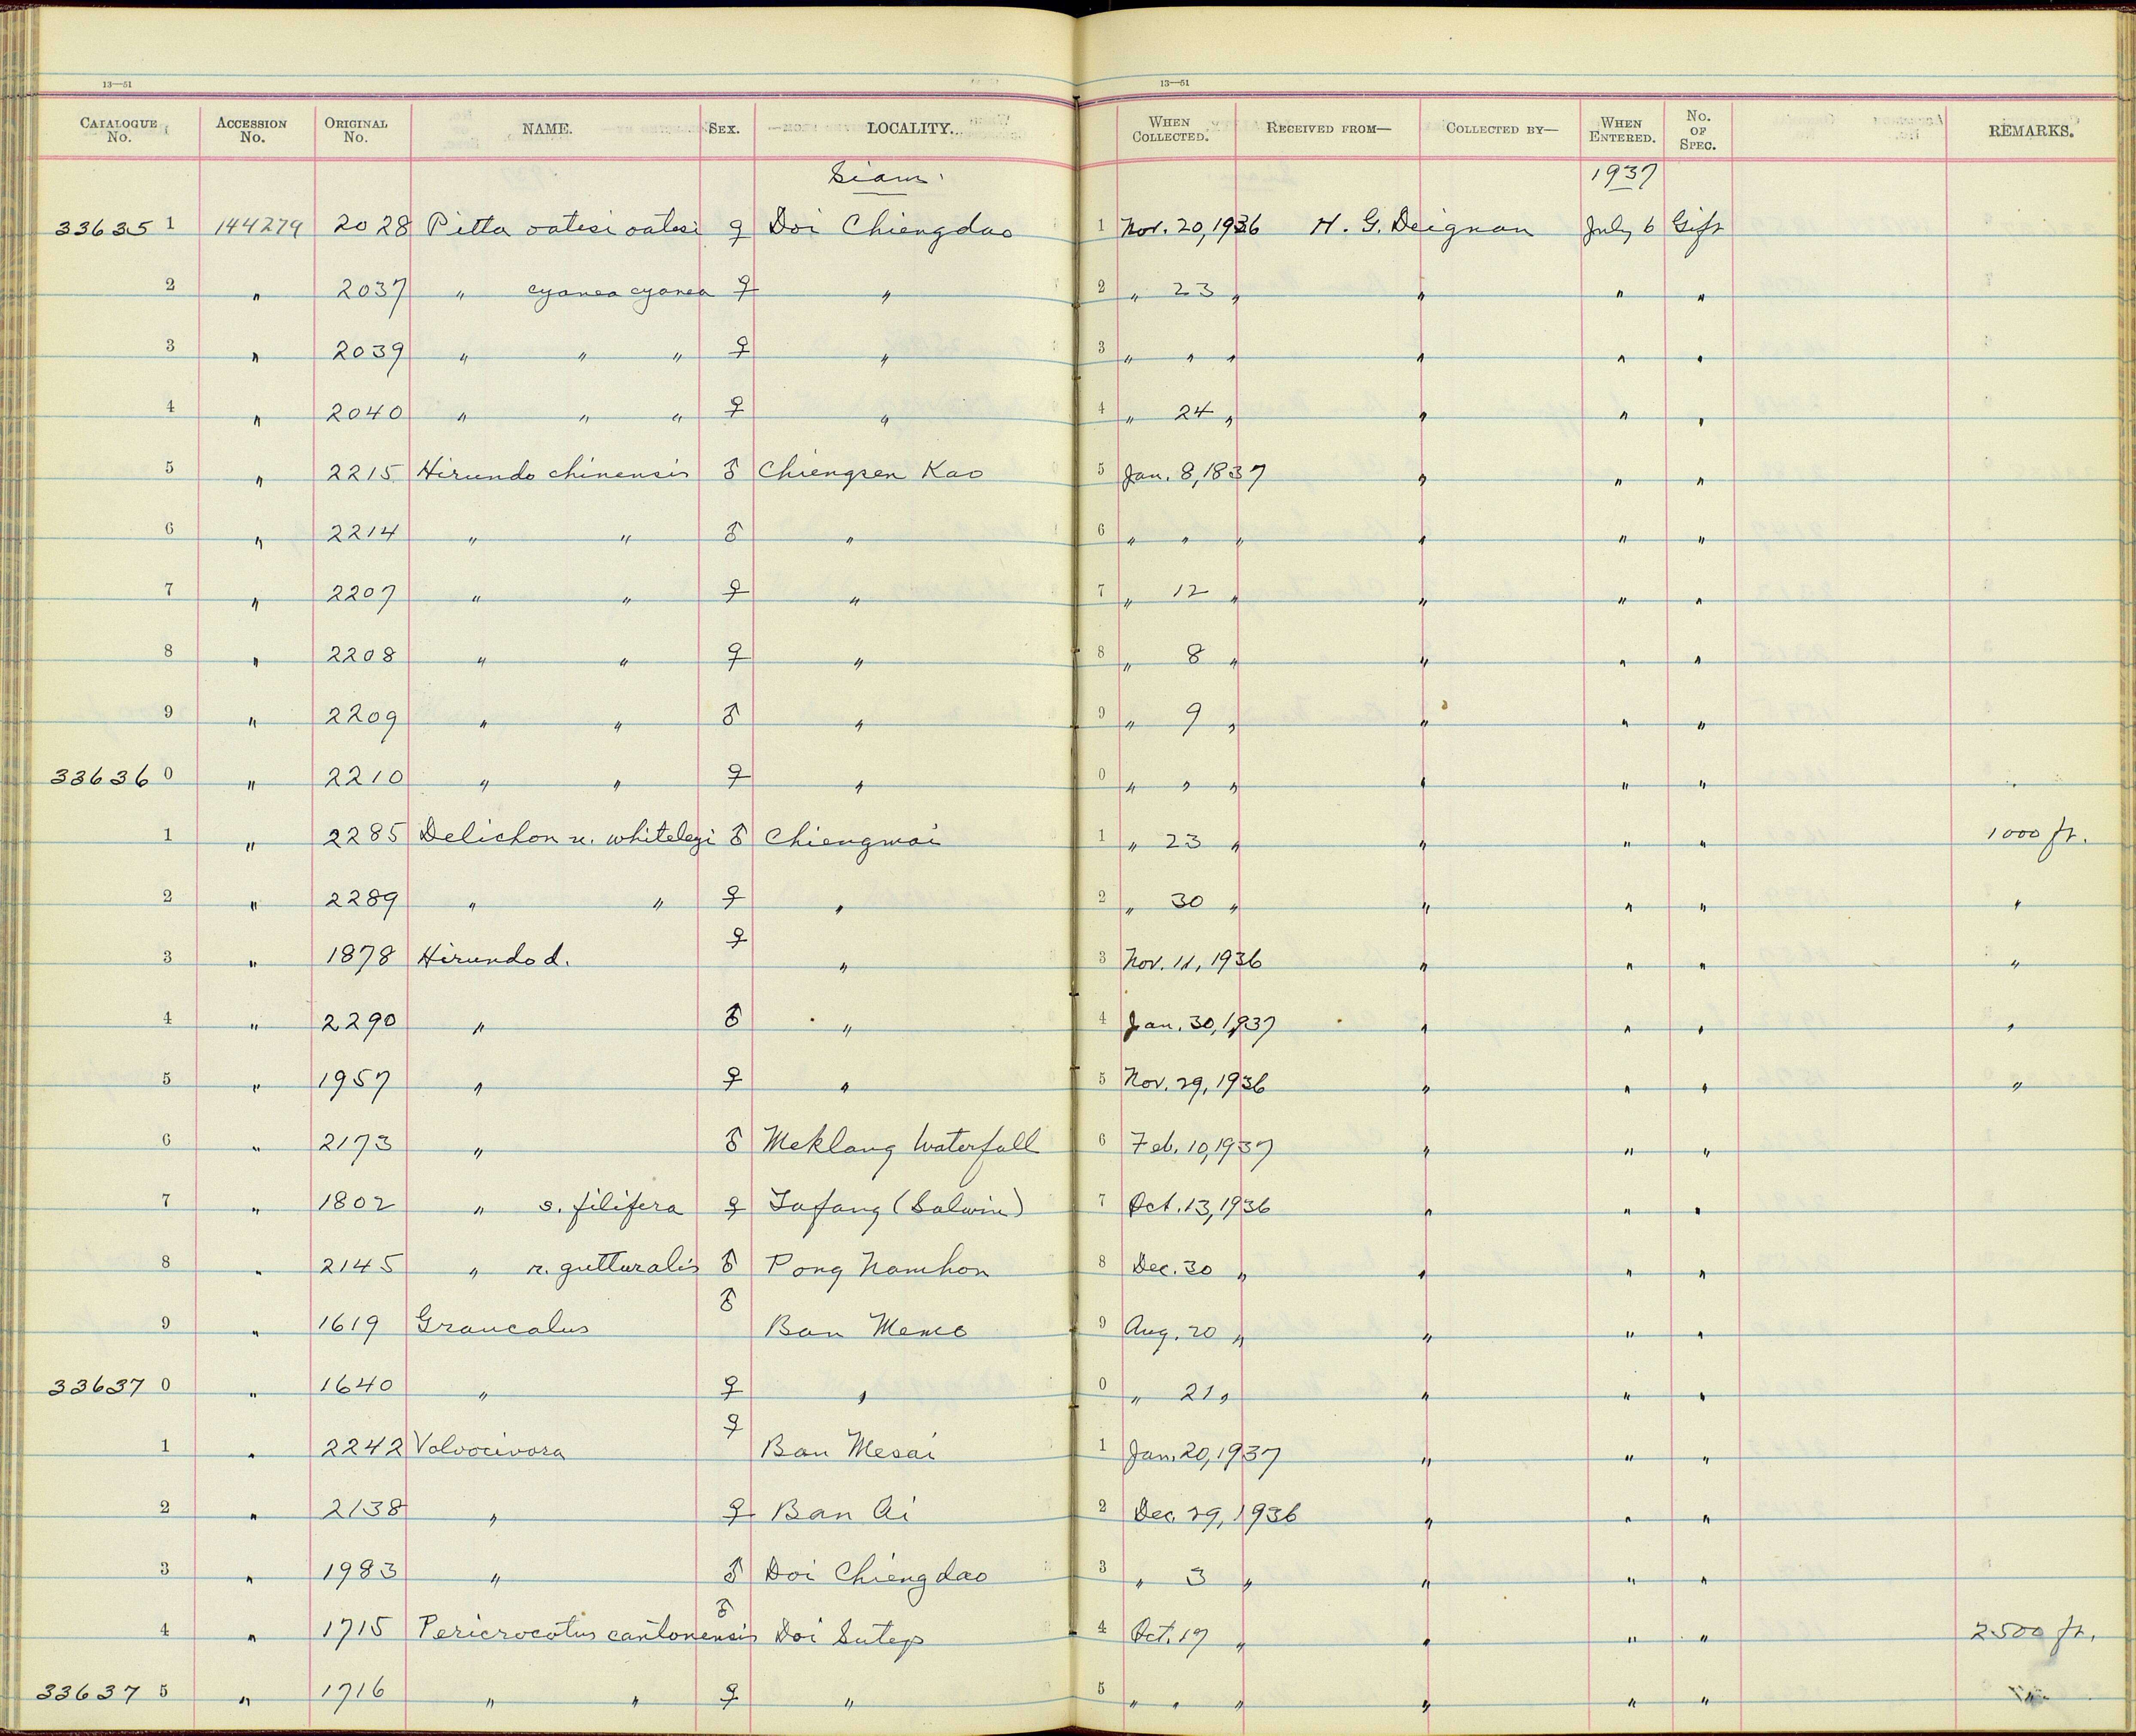 13—51 13—51
CATALOGUE No. ACCESSION No. ORIGINAL No. NAME. SEX. LOCALITY. WHEN COLLECTED. RECEIVED FROM— COLLECTED BY— WHEN ENTERED. No. OF SPEC. REMARKS.
Siam. 1937
33635 1 144279 2028 Pitta oatesi oatesi ♀ Doi Chiengdao 1 Nov. 20, 1936 H. G. Deignan July 6 Gift
2 " 2037 " cyanea cyanea ♀ " 2 " 23 " " " "
3 " 2039 " " " ♀ " 3 " " " " " "
4 " 2040 " " " ♀ " 4 " 24 " " " "
5 " 2215 Hirundo chinensis ♂ Chiengsen Kao 5 Jan. 8, 1837 " " "
6 " 2214 " " ♂ " 6 " " " " " "
7 " 2207 " " ♀ " 7 " 12 " " " "
8 " 2208 " " ♀ " 8 " 8 " " " "
9 " 2209 " " ♂ " 9 " 9 " " " "
33636 0 " 2210 " " ♀ " 0 " " " " " "
1 " 2285 Delichon u. whiteleyi ♂ Chiengmai 1 " 23 " " " " 1000 ft.
2 " 2289 " " ♀ " 2 " 30 " " " " "
3 " 1878 Hirundo d. ♀ " 3 Nov. 11, 1936 " " " "
4 " 2290 " ♂ " 4 Jan. 30, 1937 " " " "
5 " 1957 " ♀ " 5 Nov. 29, 1936 " " " "
6 " 2173 " ♂ Meklang Waterfall 6 Feb. 10, 1937 " " "
7 " 1802 " s. filifera ♀ Tafang (Salwin) 7 Oct. 13, 1936 " " "
8 " 2145 " r. gutturalis ♂ Pong Namhon 8 Dec. 30 " " " "
9 " 1619 Graucalus ♂ Ban Meme 9 Aug. 20 " " " "
33637 0 " 1640 " ♀ " 0 " 21 " " " "
1 " 2242 Volvocivora ♀ Ban Mesai 1 Jan. 20, 1937 " " "
2 " 2138 " ♀ Ban Ai 2 Dec. 29, 1936 " " "
3 " 1983 " ♂ Doi Chiengdao 3 " 3 " " " "
4 " 1715 Pericrocotus cantonensis ♂ Doi Sutep 4 Oct. 17 " " " " 2500 ft.
33637 5 " 1716 " " ♀ " 5 " " " " " "